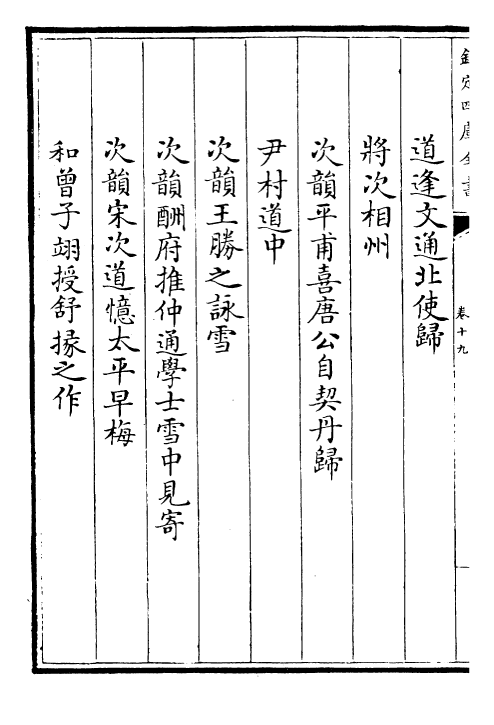 欽定四庫全書
卷十九
道逢文通北使歸
將次相州
次韻平甫喜唐公自契丹歸
尹村道中
次韻王勝之詠雪
次韻酬府推仲通學士雪中見寄
次韻宋次道憶太平早梅
和曾子翊授舒掾之作